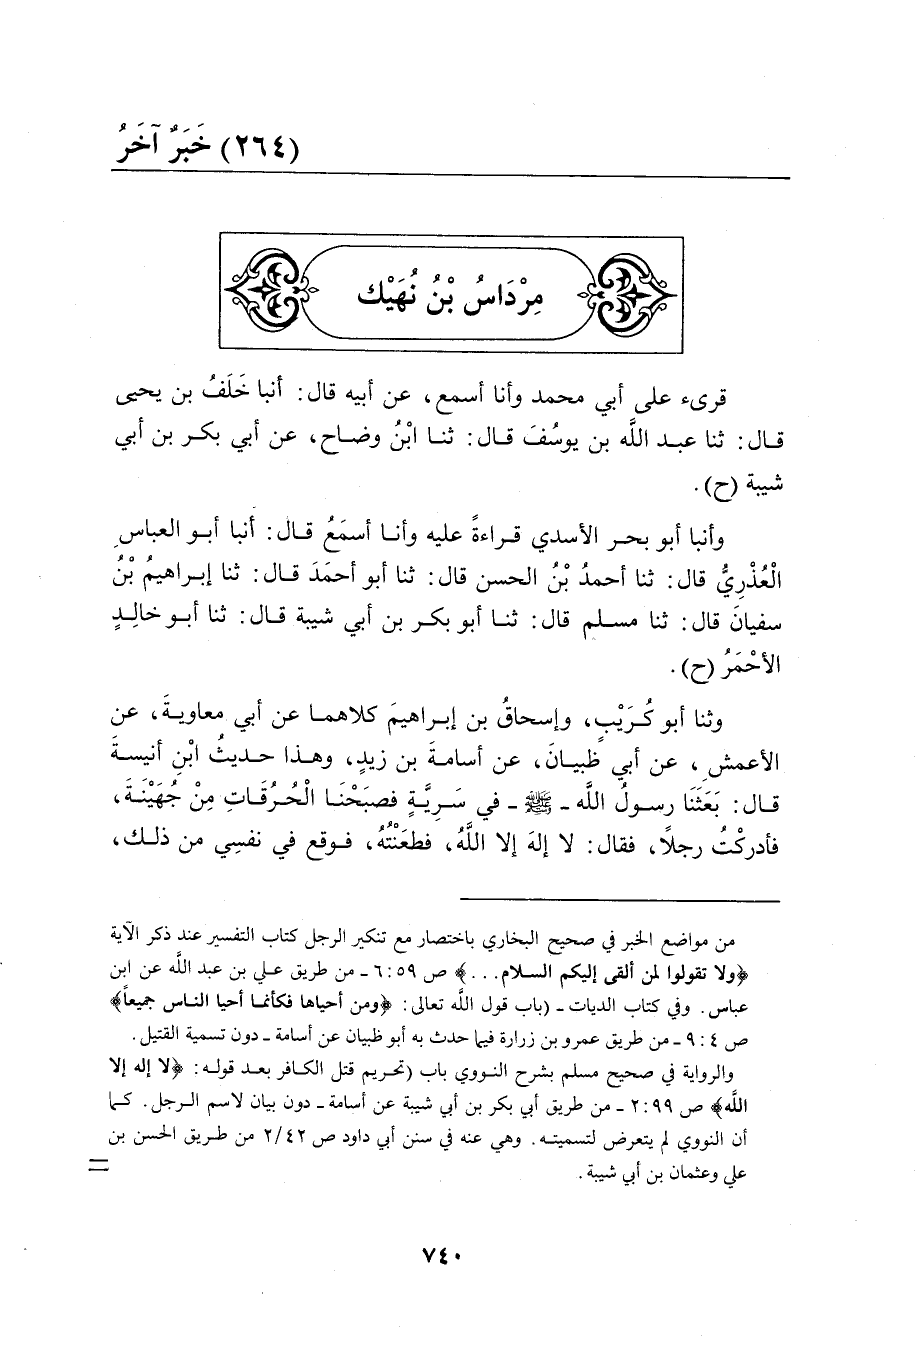 (٢٦٤) خَبَرٌ آخَرُ
مِرْدَاسُ بْنُ نُهَيْك
قرىء على أبي محمد وأنا أسمع، عن أبيه قال: أنبا خَلَفُ بن يحيى
قال: ثنا عبد اللَّه بن يوسُفَ قال: ثنا ابْنُ وضاح، عن أبي بكر بن أبي
شيبة (ح).
وأنبا أبو بحر الأسدي قراءةً عليه وأنا أسمَعُ قال: أنبا أبو العباسِ
الْعُذْرِيُّ قال: ثنا أحمدُ بْنُ الحسن قال: ثنا أبو أحمَدَ قال: ثنا إبراهيمُ بْنُ
سفيانَ قال: ثنا مسلم قال: ثنا أبو بكر بن أبي شيبة قال: ثنا أبو خالِدٍ
الأحْمَرُ (ح).
وثنا أبو كُرَيْبٍ، وإسحاقُ بن إبراهيمَ كلاهما عن أبي معاويةَ، عن
الأعمشِ، عن أبي ظبيانَ، عن أسامةَ بن زيدٍ، وهذا حديثُ ابْنِ أنيسةَ
قال: بَعَثَنَا رسولُ اللَّه ـ ﷺ ـ في سَرِيَّةٍ فصبَحْنَا الْحُرَقَاتِ مِنْ جُهَيْنَةَ،
فأدركْتُ رجلاً، فقال: لا إلهَ إلا اللَّهُ، فطَعَنْتُهُ، فوقع في نفسِي من ذلك،
من مواضع الخبر في صحيح البخاري باختصار مع تنكير الرجل كتاب التفسير عند ذكر الآية
﴿ولا تقولوا لمن ألقى إليكم السلام...﴾ ص ٦:٥٩ ـ من طريق علي بن عبد اللَّه عن ابن
عباس. وفي كتاب الديات ـ (باب قول اللَّه تعالى: ﴿ومن أحياها فكأنما أحيا الناس جميعاً﴾
ص ٩:٤ ـ من طريق عمرو بن زرارة فيما حدث به أبو ظبيان عن أسامة ـ دون تسمية القتيل.
والرواية في صحيح مسلم بشرح النووي باب (تحريم قتل الكافر بعد قوله: ﴿لا إله إلا
اللَّه﴾ ص ٢:٩٩ ـ من طريق أبي بكر بن أبي شيبة عن أسامة ـ دون بيان لاسم الرجل. كما
أن النووي لم يتعرض لتسميته. وهي عنه في سنن أبي داود ص ٢/٤٢ من طريق الحسن بن
علي وعثمان بن أبي شيبة.
=
٧٤٠